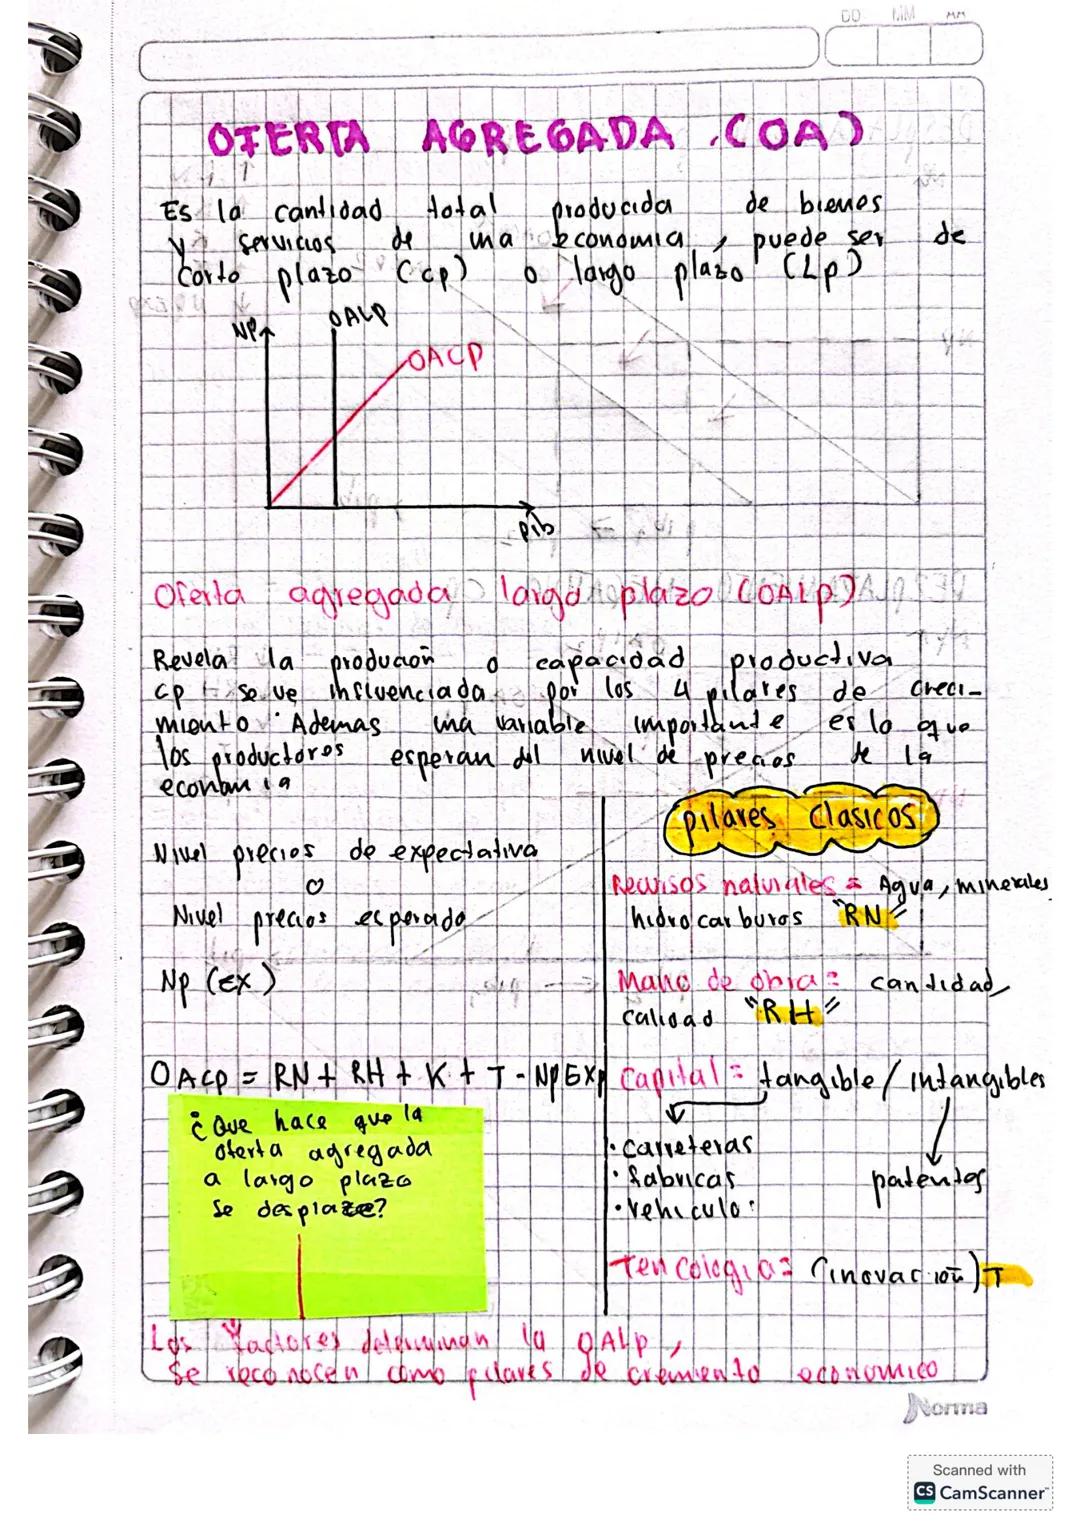 DD MM AA
OFERTA AGREGADA (OA)
Es la cantidad total producida de bienes
y servicios de una economia, puede ser de
corto plazo (cp) o largo plazo (Lp)
NP
OALP
OACP
Pib
Oferta agregada largo plazo (OALp)
Revela la producion o capacidad productiva
cp se ve influenciada por los 4 pilares de creci-
miento. Ademas una variable importante es lo que
los productores esperan del nivel de precios de la
economia
Nivel precios de expectativa
o
Nivel precios esperado
Np (Ex)
OAcp = RN + RH + K + T - NpExp
¿Que hace que la
oferta agregada
a largo plazo
se desplaze?
pilares clasicos
Recursos naturales = Agua, minerales
hidrocarburos "RN"
Mano de obra = cantidad,
calidad "RH"
Capital = tangible / intangibles
• carreteras
• fabricas
• vehiculo
patentes
Tencologia = (inovación) T
Los factores determinan la OALp,
se reconocen como pilares de cremiento economico
Norma
Scanned with
CS CamScanner